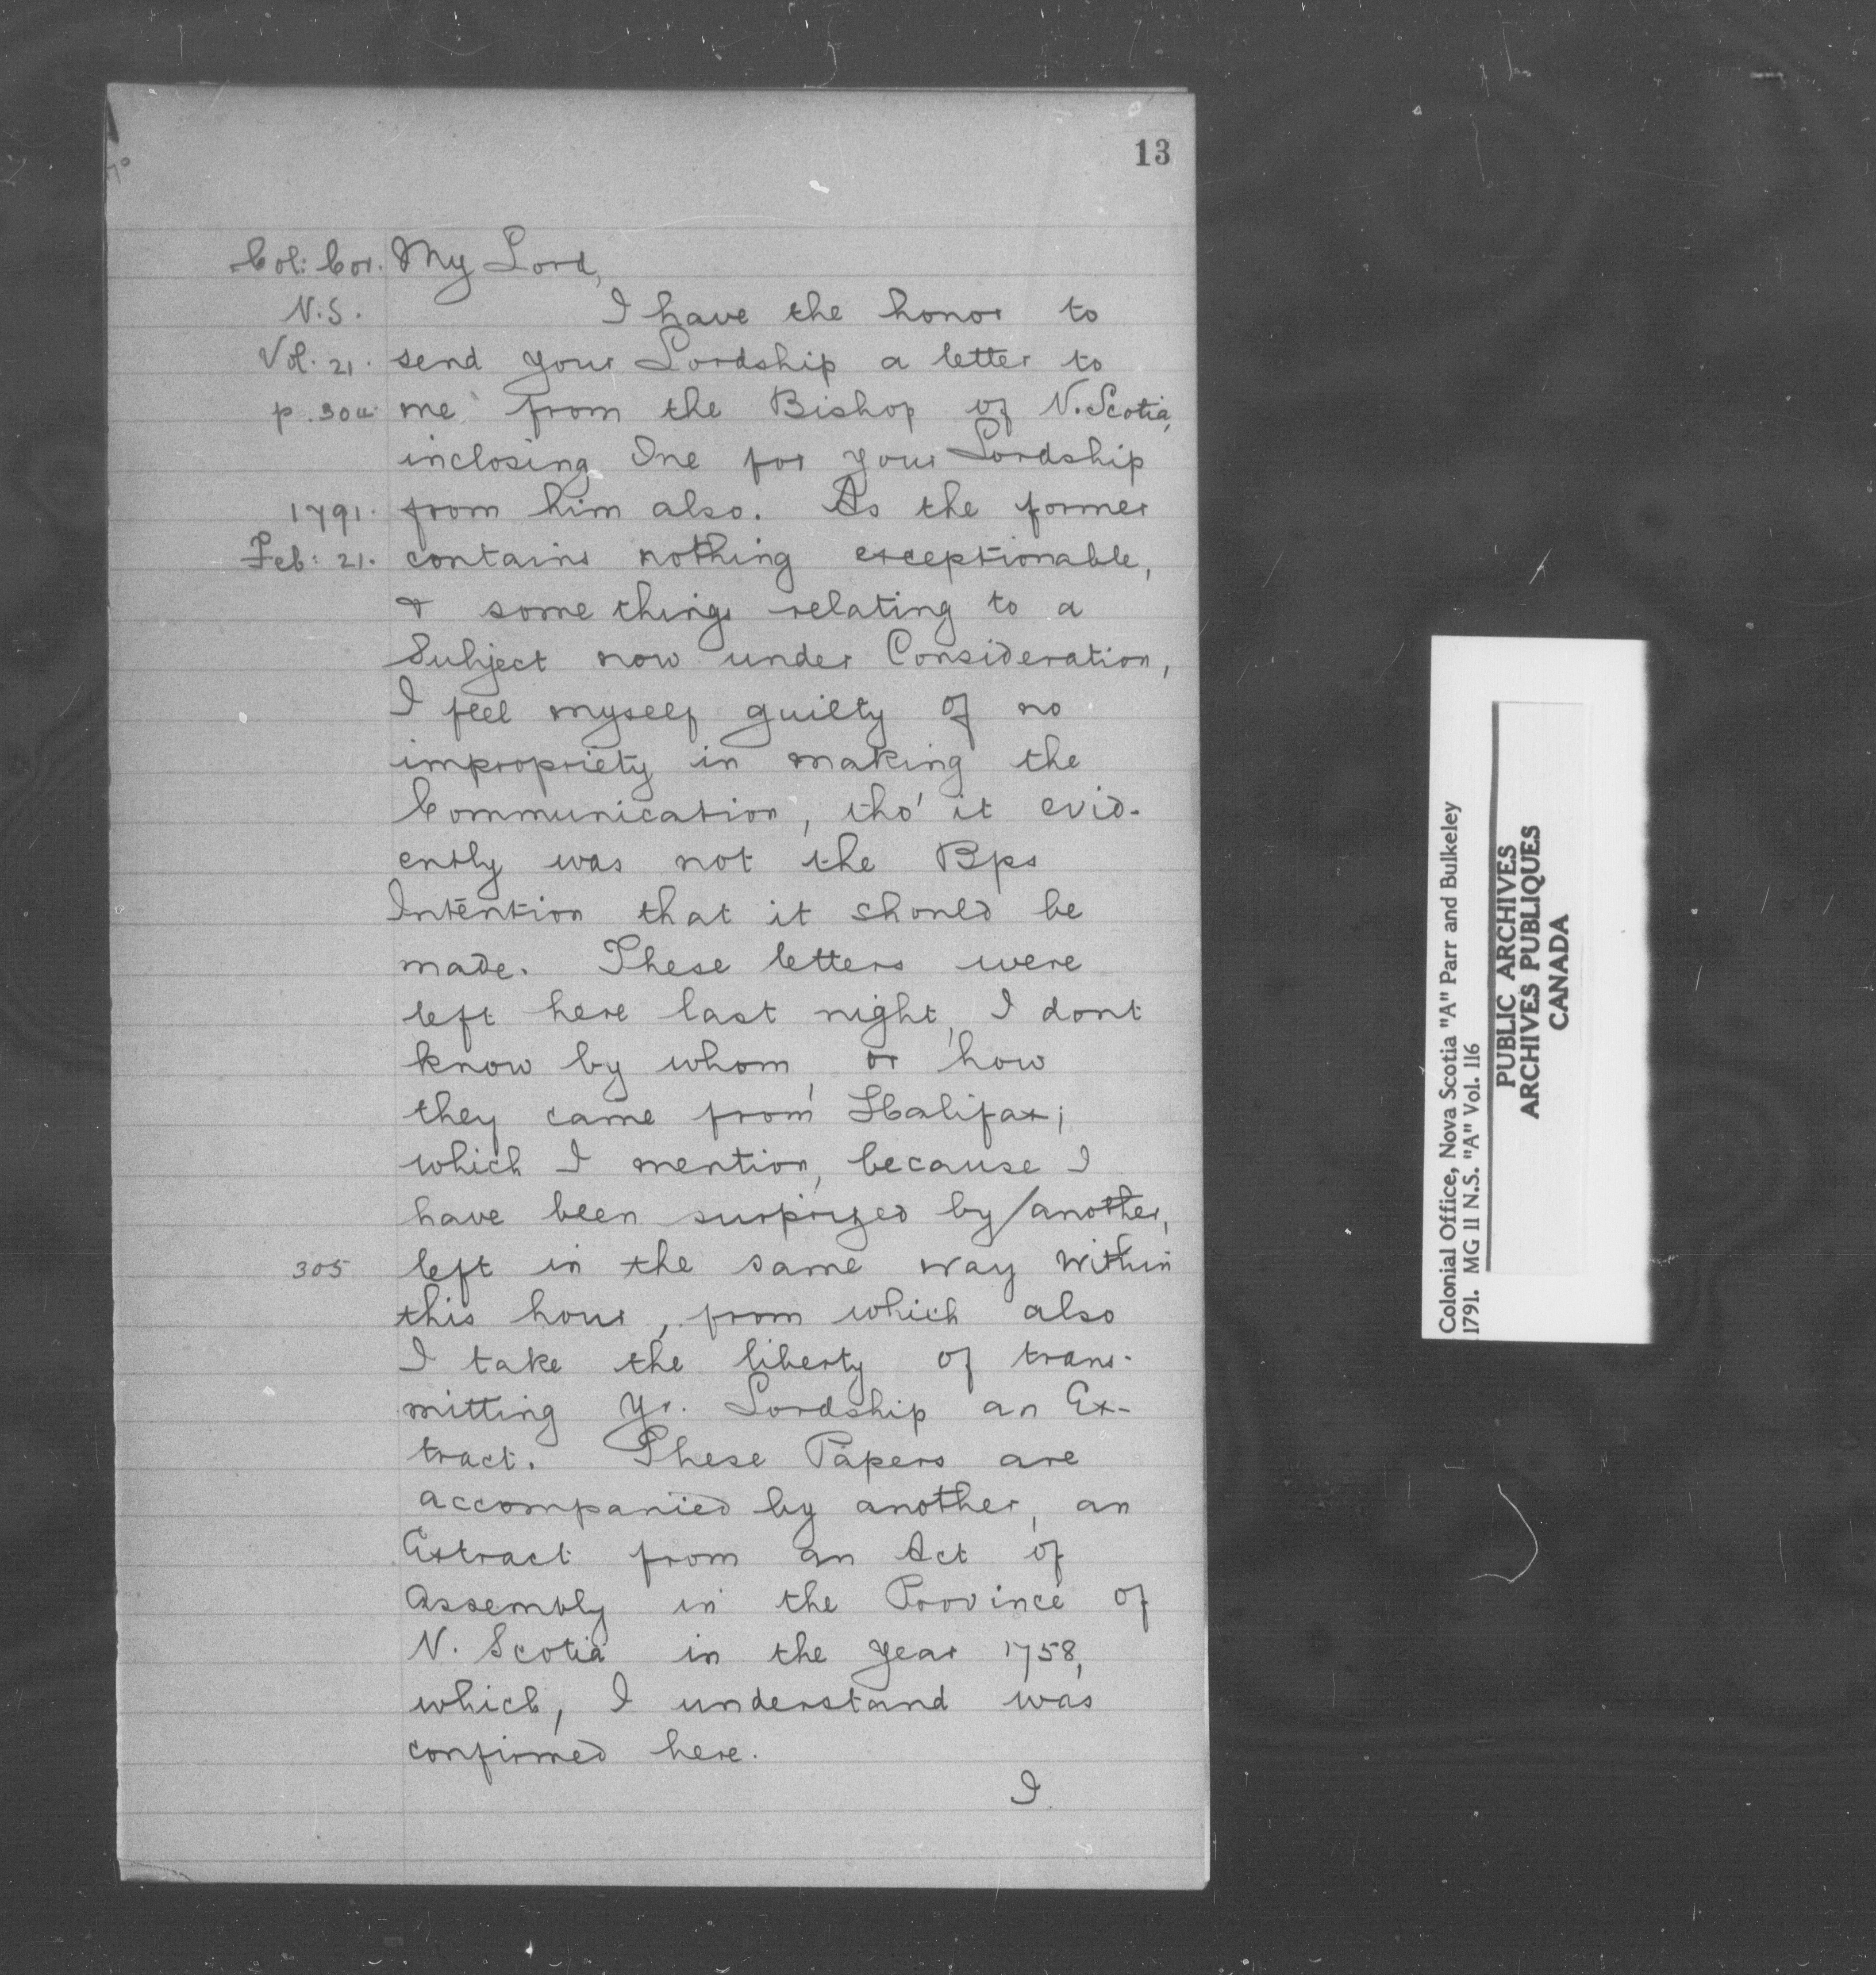 13
Col: Cor. My Lord,
N.S. I have the honor to
Vol. 21. send your Lordship a letter to
p. 304. me from the Bishop of N. Scotia,
inclosing One for your Lordship
1791. from him also. As the former
Feb: 21. contains nothing exceptionable,
& some things relating to a
Subject now under Consideration,
I feel myself guilty of no
impropriety in making the
Communication, tho' it evid-
ently was not the Bps
Intention that it should be
made. These letters were
left here last night, I dont
know by whom, or how
they came from Halifax;
which I mention, because I
have been surprized by/another,
305 left in the same way within
this hour, from which also
I take the liberty of trans-
mitting Yr. Lordship an Ex-
tract. These Papers are
accompanied by another, an
Extract from an Act of
Assembly in the Province of
N. Scotia in the year 1758,
which, I understand was
confirmed here.
I
Colonial Office, Nova Scotia "A" Parr and Bulkeley
1791. MG 11 N.S. "A" Vol. 116
PUBLIC ARCHIVES
ARCHIVES PUBLIQUES
CANADA